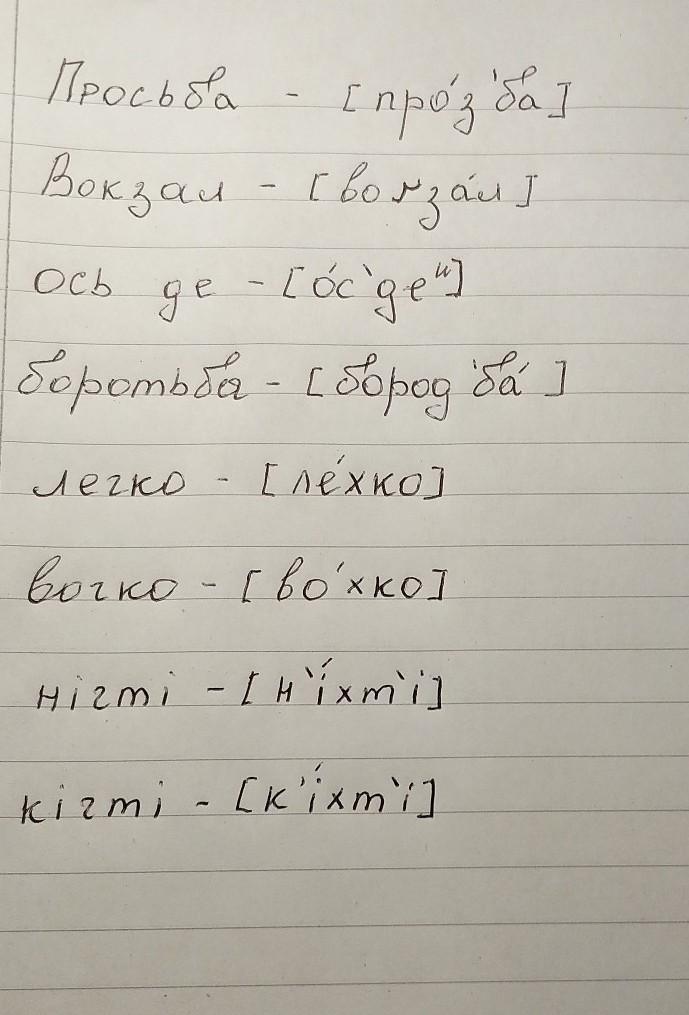 Просьба - [про́з'ба]
Вокзал - [воґза́л]
ось де - [о́с'деᵘ]
боротьба - [бород'ба́]
легко - [ле́хко]
вогко - [во́хко]
нігті - [н'і́хт'і]
кігті - [к'і́хт'і]